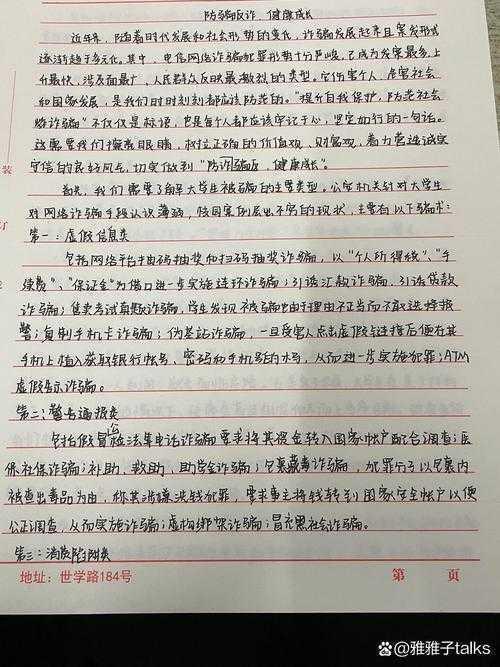 防骗反诈，健康成长
近年来，随着时代发展和社会形势的变化，诈骗发展趋势且案发形式
逐渐趋于多元化。其中，电信网络诈骗犯罪形势十分严峻，已成为发案最多，上
升最快，涉及面最广，人民群众反映最激烈的类型。它伤害个人，危害社会
和国家发展，是我们时时刻刻都应该防范的。"提升自我保护，防范社会
诈骗"不仅仅是标语，也是每个人都应该牢记于心，坚定如行的一句话。
这需要我们擦亮眼睛，树立正确的价值观，财富观，着力营造诚实
守信的良好风气，切实做到"防诈骗反，健康成长"。
首先，我们需要了解大学生被骗的主要类型。公安机关针对大学生
对网络诈骗手段认识薄弱，校园案例层出不穷的现状，主要有以下骗术：
第一：虚假信息类
包括网络平台扫码抽奖和扫码抽奖诈骗，以"个人所得税"、"手
续费"、"保证金"为借口进一步实施连环诈骗；引诱汇款诈骗、引诱贷款
诈骗；售卖考试真题诈骗，学生发现被骗也由于理由不正当而不敢选择报
警；复制手机卡诈骗；伪基站诈骗，一旦受害人点击虚假链接后便在其
手机上植入获取银行帐号、密码和手机号的木马，从而进一步实施犯罪；ATM
虚假告示诈骗。
第二：警告通报类
包括假冒检法集电话诈骗，要求将其资金转入国家帐户配合调查；医
保社保诈骗；补助、救助、助学金诈骗；包裹藏毒诈骗，犯罪分子以包裹内
被查出毒品为由，称其涉嫌洗钱犯罪，要求事主将钱转到国家安全帐户以便
公正调查，从而实施诈骗；虚构绑架诈骗；冒充黑社会诈骗。
第三：消费陷阱类
地址：世学路184号
第 页
装
订
雅雅子talks